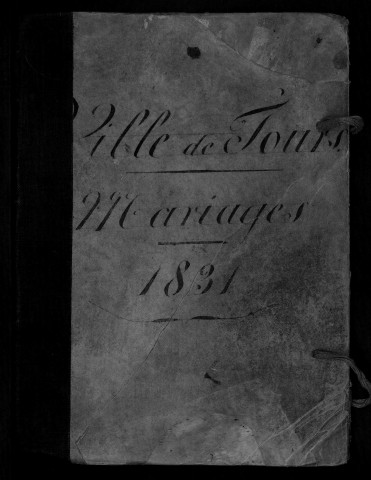 Ville de Tours
Mariages
1831